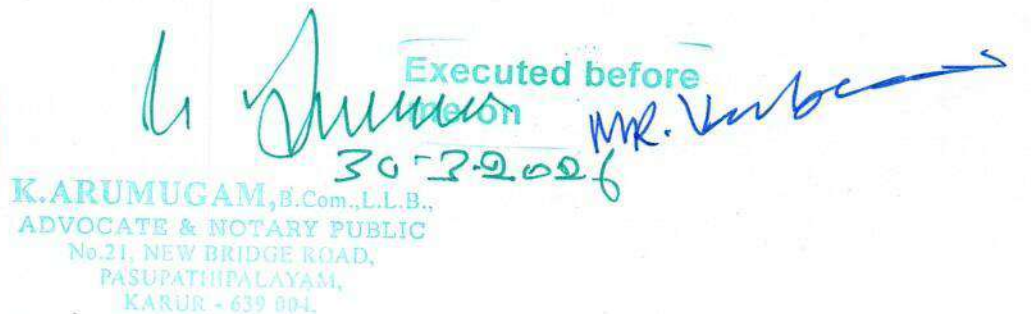 Executed before
me on
30-3-2026
MR.
K.ARUMUGAM, B.Com.,L.L.B.,
ADVOCATE & NOTARY PUBLIC
No.21, NEW BRIDGE ROAD,
PASUPATHIPALAYAM,
KARUR - 639 004.